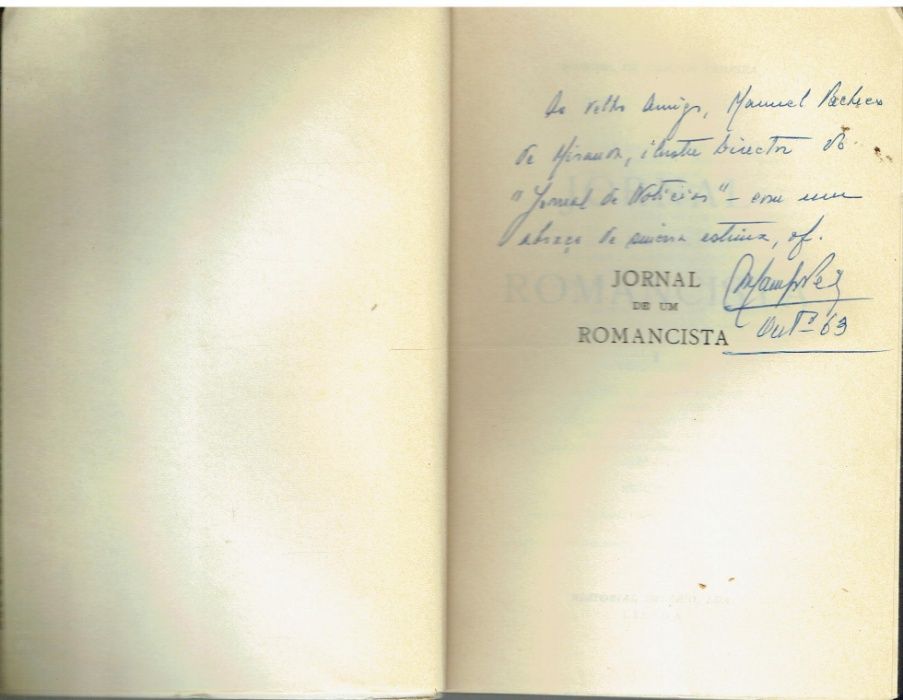 Ao velho Amigo, Manuel Pacheco
de Miranda, ilustre Director do
"Jornal de Notícias" – com um
abraço de sincera estima, of.
JORNAL
DE UM
ROMANCISTA
Outº 63